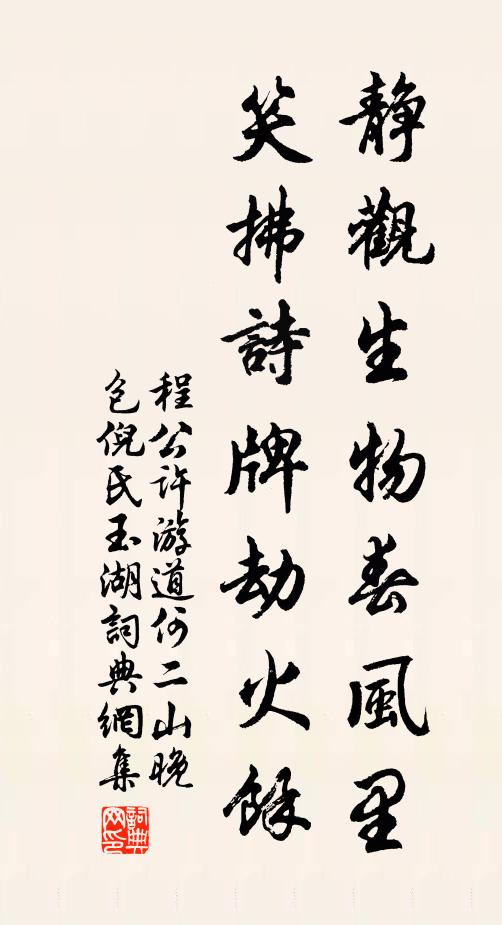 静觀生物春風里
笑拂詩牌劫火餘
程公许游道何二山晚
包倪氏玉湖詞典網集
詞典網印